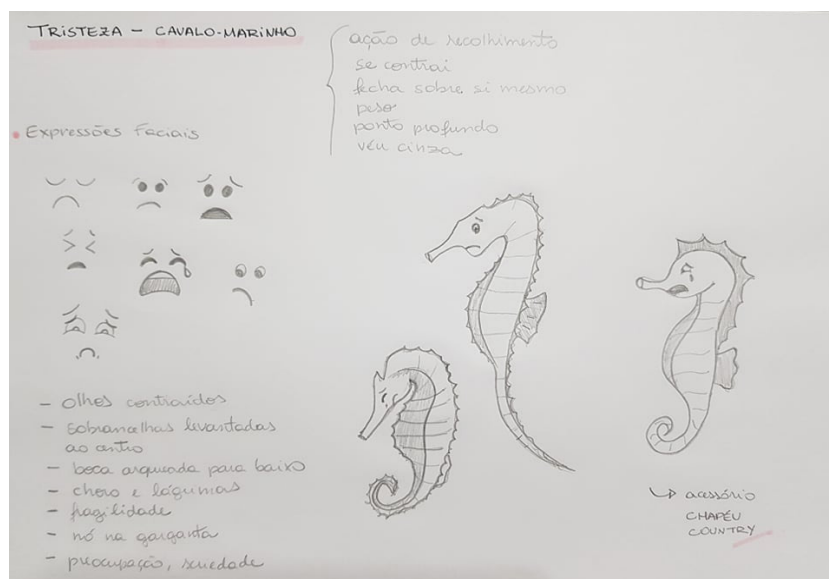 TRISTEZA – CAVALO-MARINHO
ação de recolhimento
se contrai
fecha sobre si mesmo
peso
ponto profundo
véu cinza
Expressões Faciais
– olhos contraídos
– sobrancelhas levantadas
ao centro
– boca arqueada para baixo
– choro e lágrimas
– fragilidade
– nó na garganta
– preocupação, seriedade
↳ acessório
CHAPÉU
COUNTRY